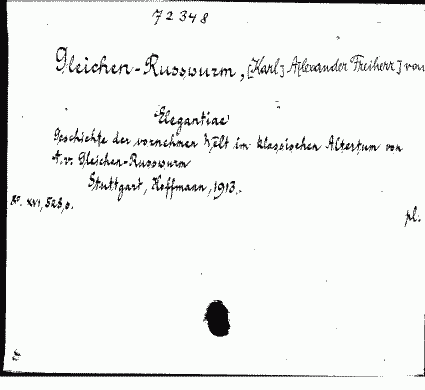 72348
Gleichen-Russwurm, [Karl] A[lexander Freiherr] von
Elegantiae
Geschichte der vornehmen Welt im klassischen Altertum von
A.v. Gleichen-Russwurm
Stuttgart, Hoffmann, 1913.
8º. XVI, 523, p.
pl.